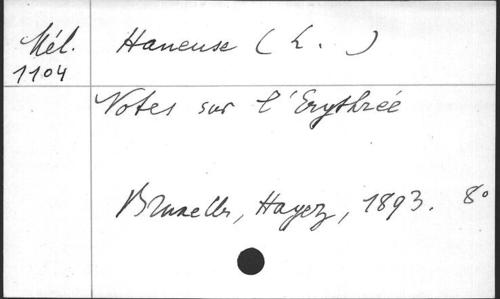 Mél. Haneuse (L.)
1104
Notes sur l'Erythrée
Bruxelles, Hayez, 1893. 8°